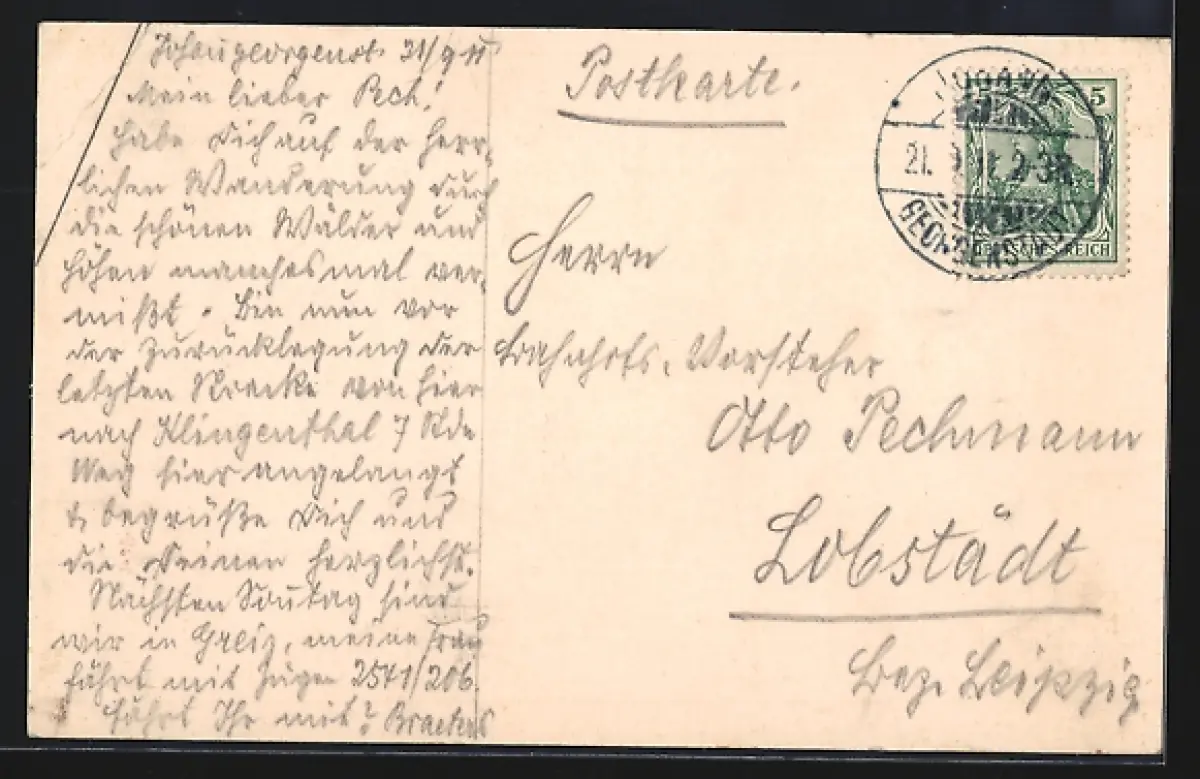 Johanngeorgenst. 21/9 11
Mein lieber Pech!
Habe Dich auf der herr-
lichen Wanderung durch
die schönen Wälder und
Höhen manchesmal ver-
mißt. Bin nun vor
der Zurücklegung der
letzten Strecke von hier
nach Klingenthal 7 Stde
Weg hier angelangt
& begrüße Dich und
die Deinen herzlichst.
Nächsten Sonntag sind
wir in Greiz, meine Frau
fährt mit Zügen 2541/206.
Fährt Ihr mit?
Postkarte.
Herrn
Bahnhofs-Vorsteher
Otto Pechmann
Lobstädt
Bez. Leipzig
JOHANN
21. 9. 11. 2-3N
GEORGENSTADT
5
DEUTSCHES REICH